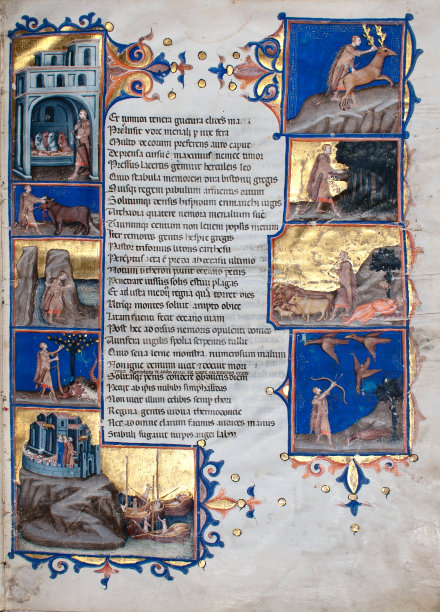 Et tumida tenera guttura elidens manu
Prelusit ydre menali pernix fera
Multo decorum preferens auro caput
Deprensa cursu est maximus nemee timor
Pressus lacertis gemuit herculeis leo
Quid stabula memorem dira bistonii gregis
Suisque regem pabulum armentis datum
Solitumque densis hispidum erimanthi iugis
Archadia quatere nemora menalium suem
Taurumque centum non leuem populis metum
Inter remotos gentis hesperie greges
Pastor triformis litoris
Peremptus acta est preda ab occasu ultimo
Notum citheron pauit oceano pecus
Penetrare iussus solis estiui plagas
Et adusta medius regna que torret dies
Utrinque montes soluit rupto obice
Latam ruenti fecit oceano uiam
Post hec adortus nemoris opulenti domos
Aurifera uigilis spolia serpentis tulit
Quid seua lerne monstra numerosum malum
Non igne demum uicit et docuit mori
Solitasque penis condere obductis diem
Petit ab ipsis nubibus stimphalidas
Non uicit illum celibis semper thori
Regina gentis uidua
Nec ad omne clarum facinus audaces manus
Stabuli fugauit turpis augei labor